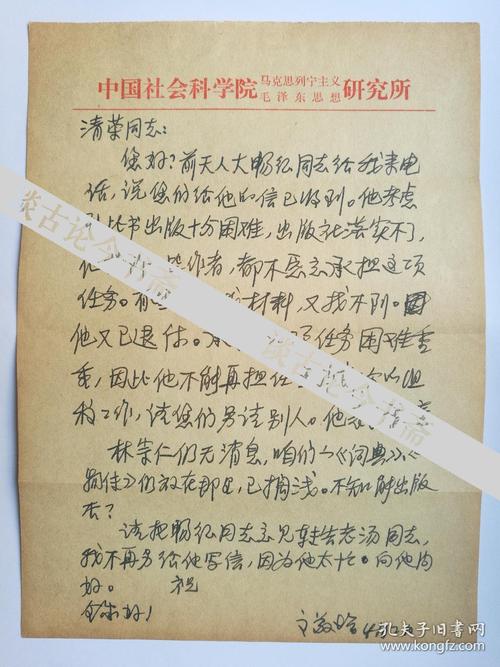 中国社会科学院 马克思列宁主义 毛泽东思想 研究所
清荣同志：
您好！前天人大畅弘同志给我来电
话，说您们给他的信已收到。他考虑
到此书出版十分困难，出版社落实不了，
作者，都不愿意承担这项
任务。材料，又找不到。
他又已退休。任务困难重
重，因此他不能再担任
工作，请您们另请别人。
林宗仁仍无消息，咱们《词典》、《
》仍放在那里，已搁浅。不知能出版
否？
请把畅弘同志意见转告老汤同志，
我不再另给他写信，因为他太忙。向他问
好。 祝
谈古论今书斋
谈古论今书斋
孔夫子旧书网
www.kongfz.com